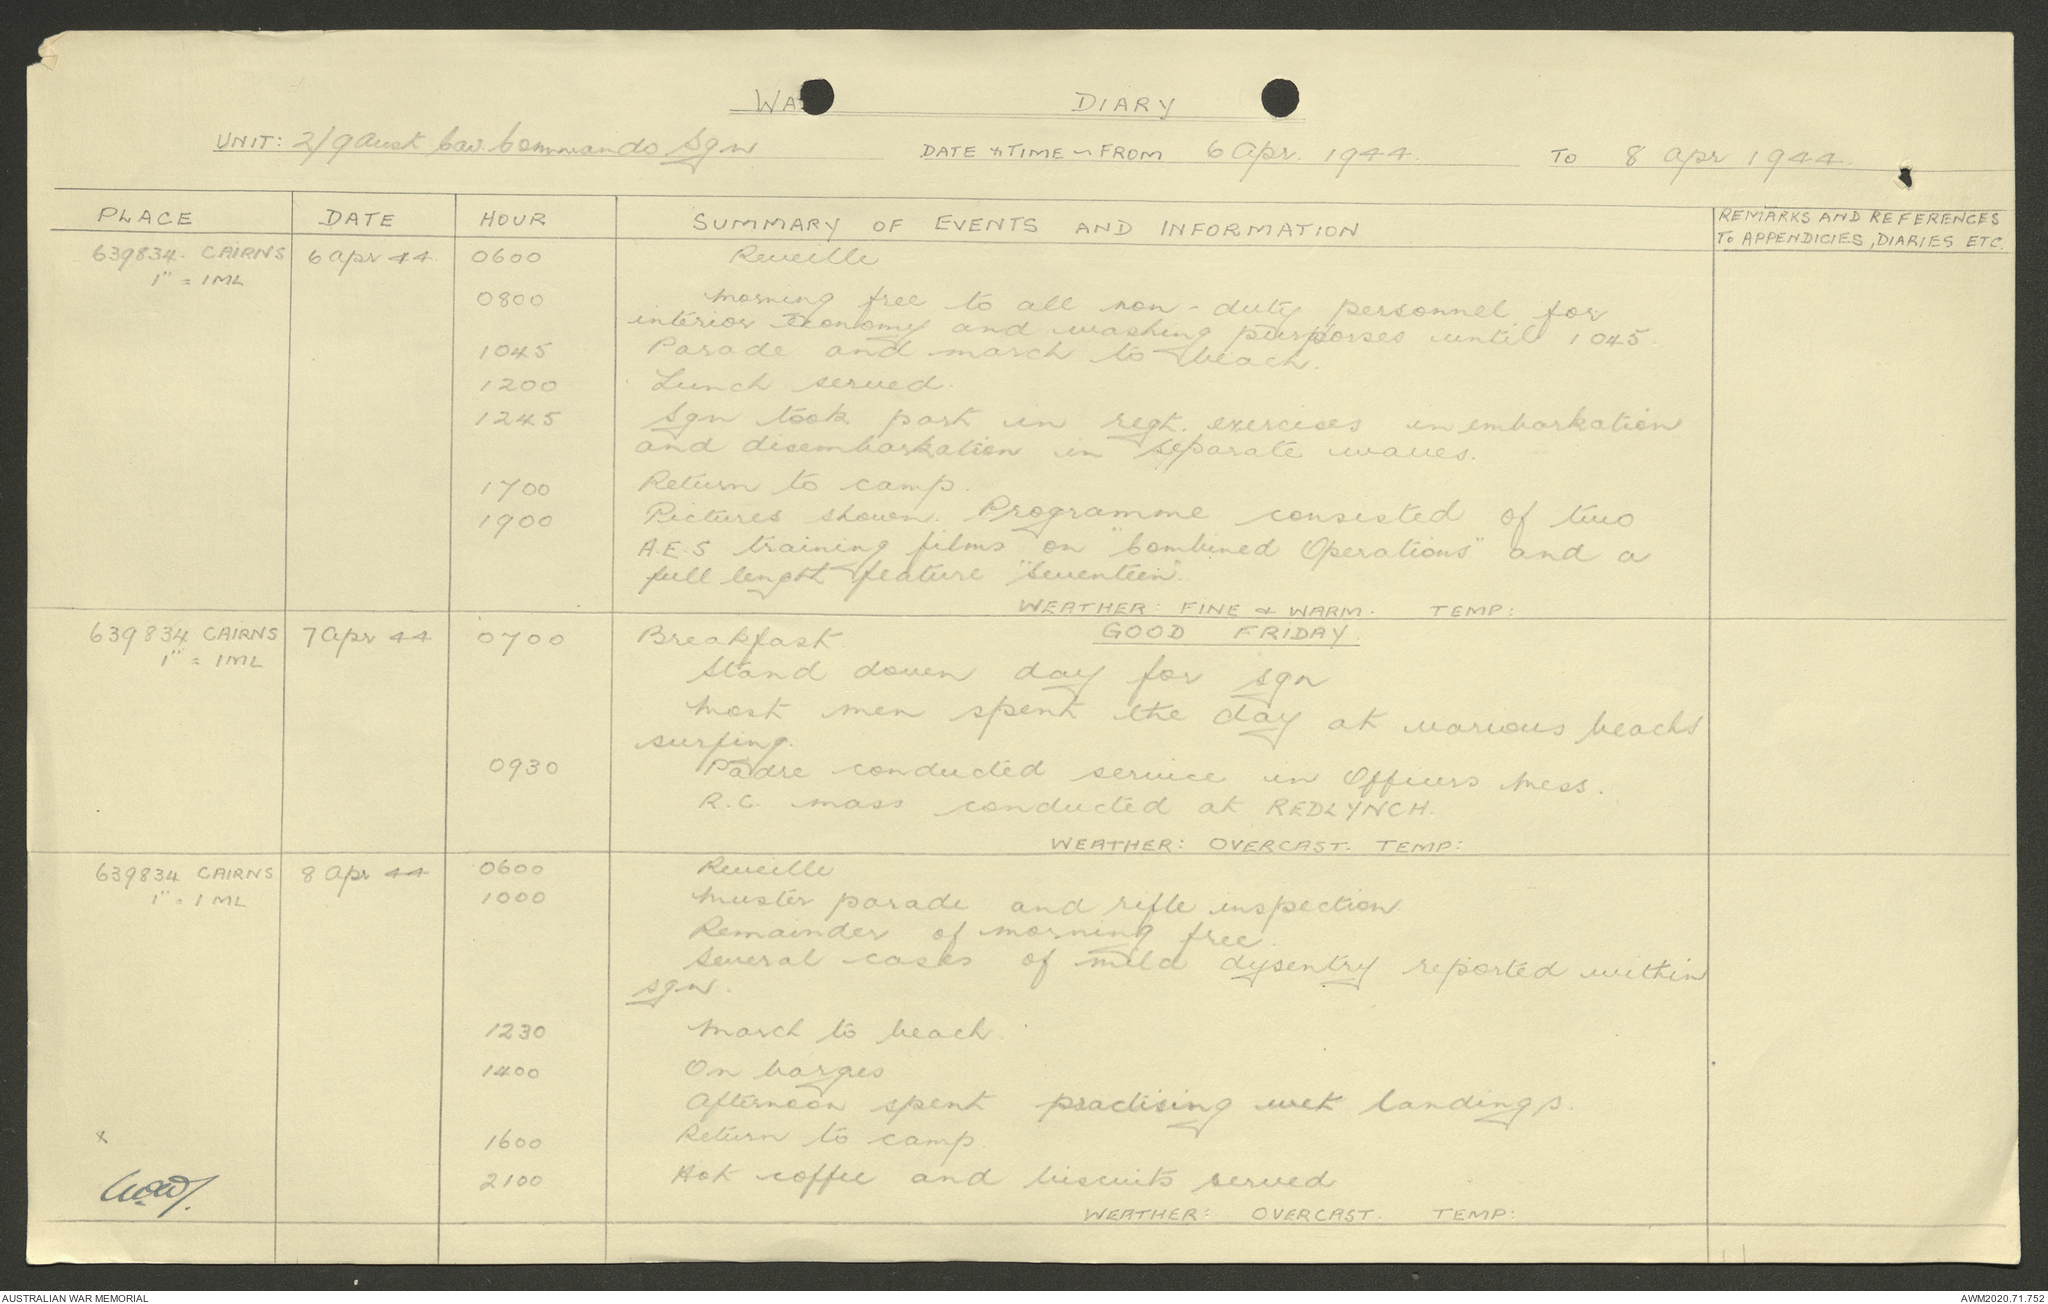 WAR DIARY
UNIT: 2/9 Aust Cav. Commando Sqn DATE & TIME - FROM 6 Apr. 1944. TO 8 Apr 1944.
PLACE DATE HOUR SUMMARY OF EVENTS AND INFORMATION REMARKS AND REFERENCES
TO APPENDICIES, DIARIES ETC.
639834. CAIRNS 6 Apr 44. 0600 Reveille
1" = 1 ML
0800 Morning free to all non-duty personnel for
interior economy and washing purposes until 1045.
1045 Parade and march to beach.
1200 Lunch served.
1245 Sqn took part in regt. exercises in embarkation
and disembarkation in separate waves.
1700 Return to camp.
1900 Pictures shown. Programme consisted of two
A.E.S training films on "Combined Operations" and a
full lenght feature "Seventeen".
WEATHER: FINE & WARM. TEMP:
639834 CAIRNS 7 Apr 44 0700 Breakfast. GOOD FRIDAY.
1" = 1 ML
Stand down day for sqn
Most men spent the day at various beachs
surfing.
0930 Padre conducted service in Officers Mess.
R.C. mass conducted at REDLYNCH.
WEATHER: OVERCAST. TEMP:
639834 CAIRNS 8 Apr 44 0600 Reveille
1" = 1 ML 1000 Muster parade and rifle inspection
Remainder of morning free.
Several cases of mild dysentry reported within
sqn.
1230 March to beach.
1400 On barges
Afternoon spent practising wet landings.
1600 Return to camp.
2100 Hot coffee and biscuits served
WEATHER: OVERCAST. TEMP:
AUSTRALIAN WAR MEMORIAL AWM2020.71.752